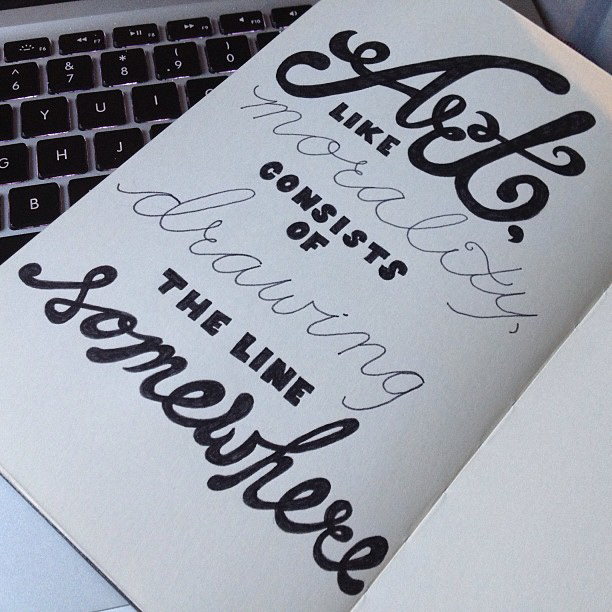 Art,
LIKE
morality,
CONSISTS
OF
drawing
THE LINE
somewhere
F6 F7 F8 F9 F10
^ & * ( )
6 7 8 9 0
Y U I
G H J
B